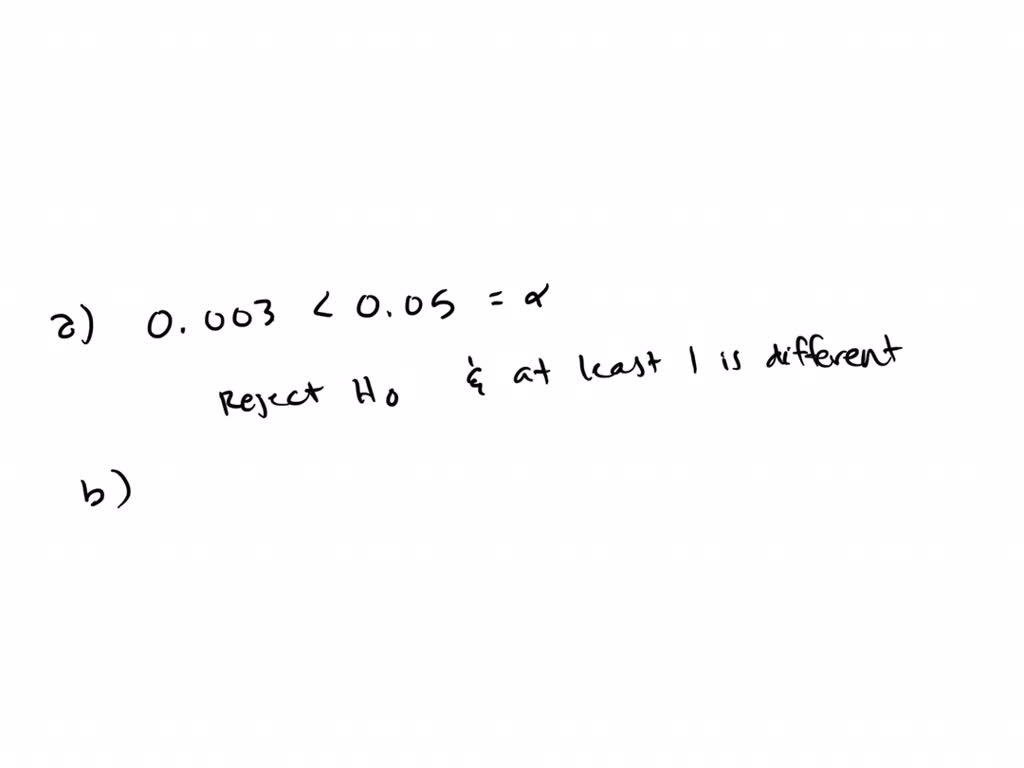 a) 0.003 < 0.05 = α
Reject H0 & at least 1 is different
b)